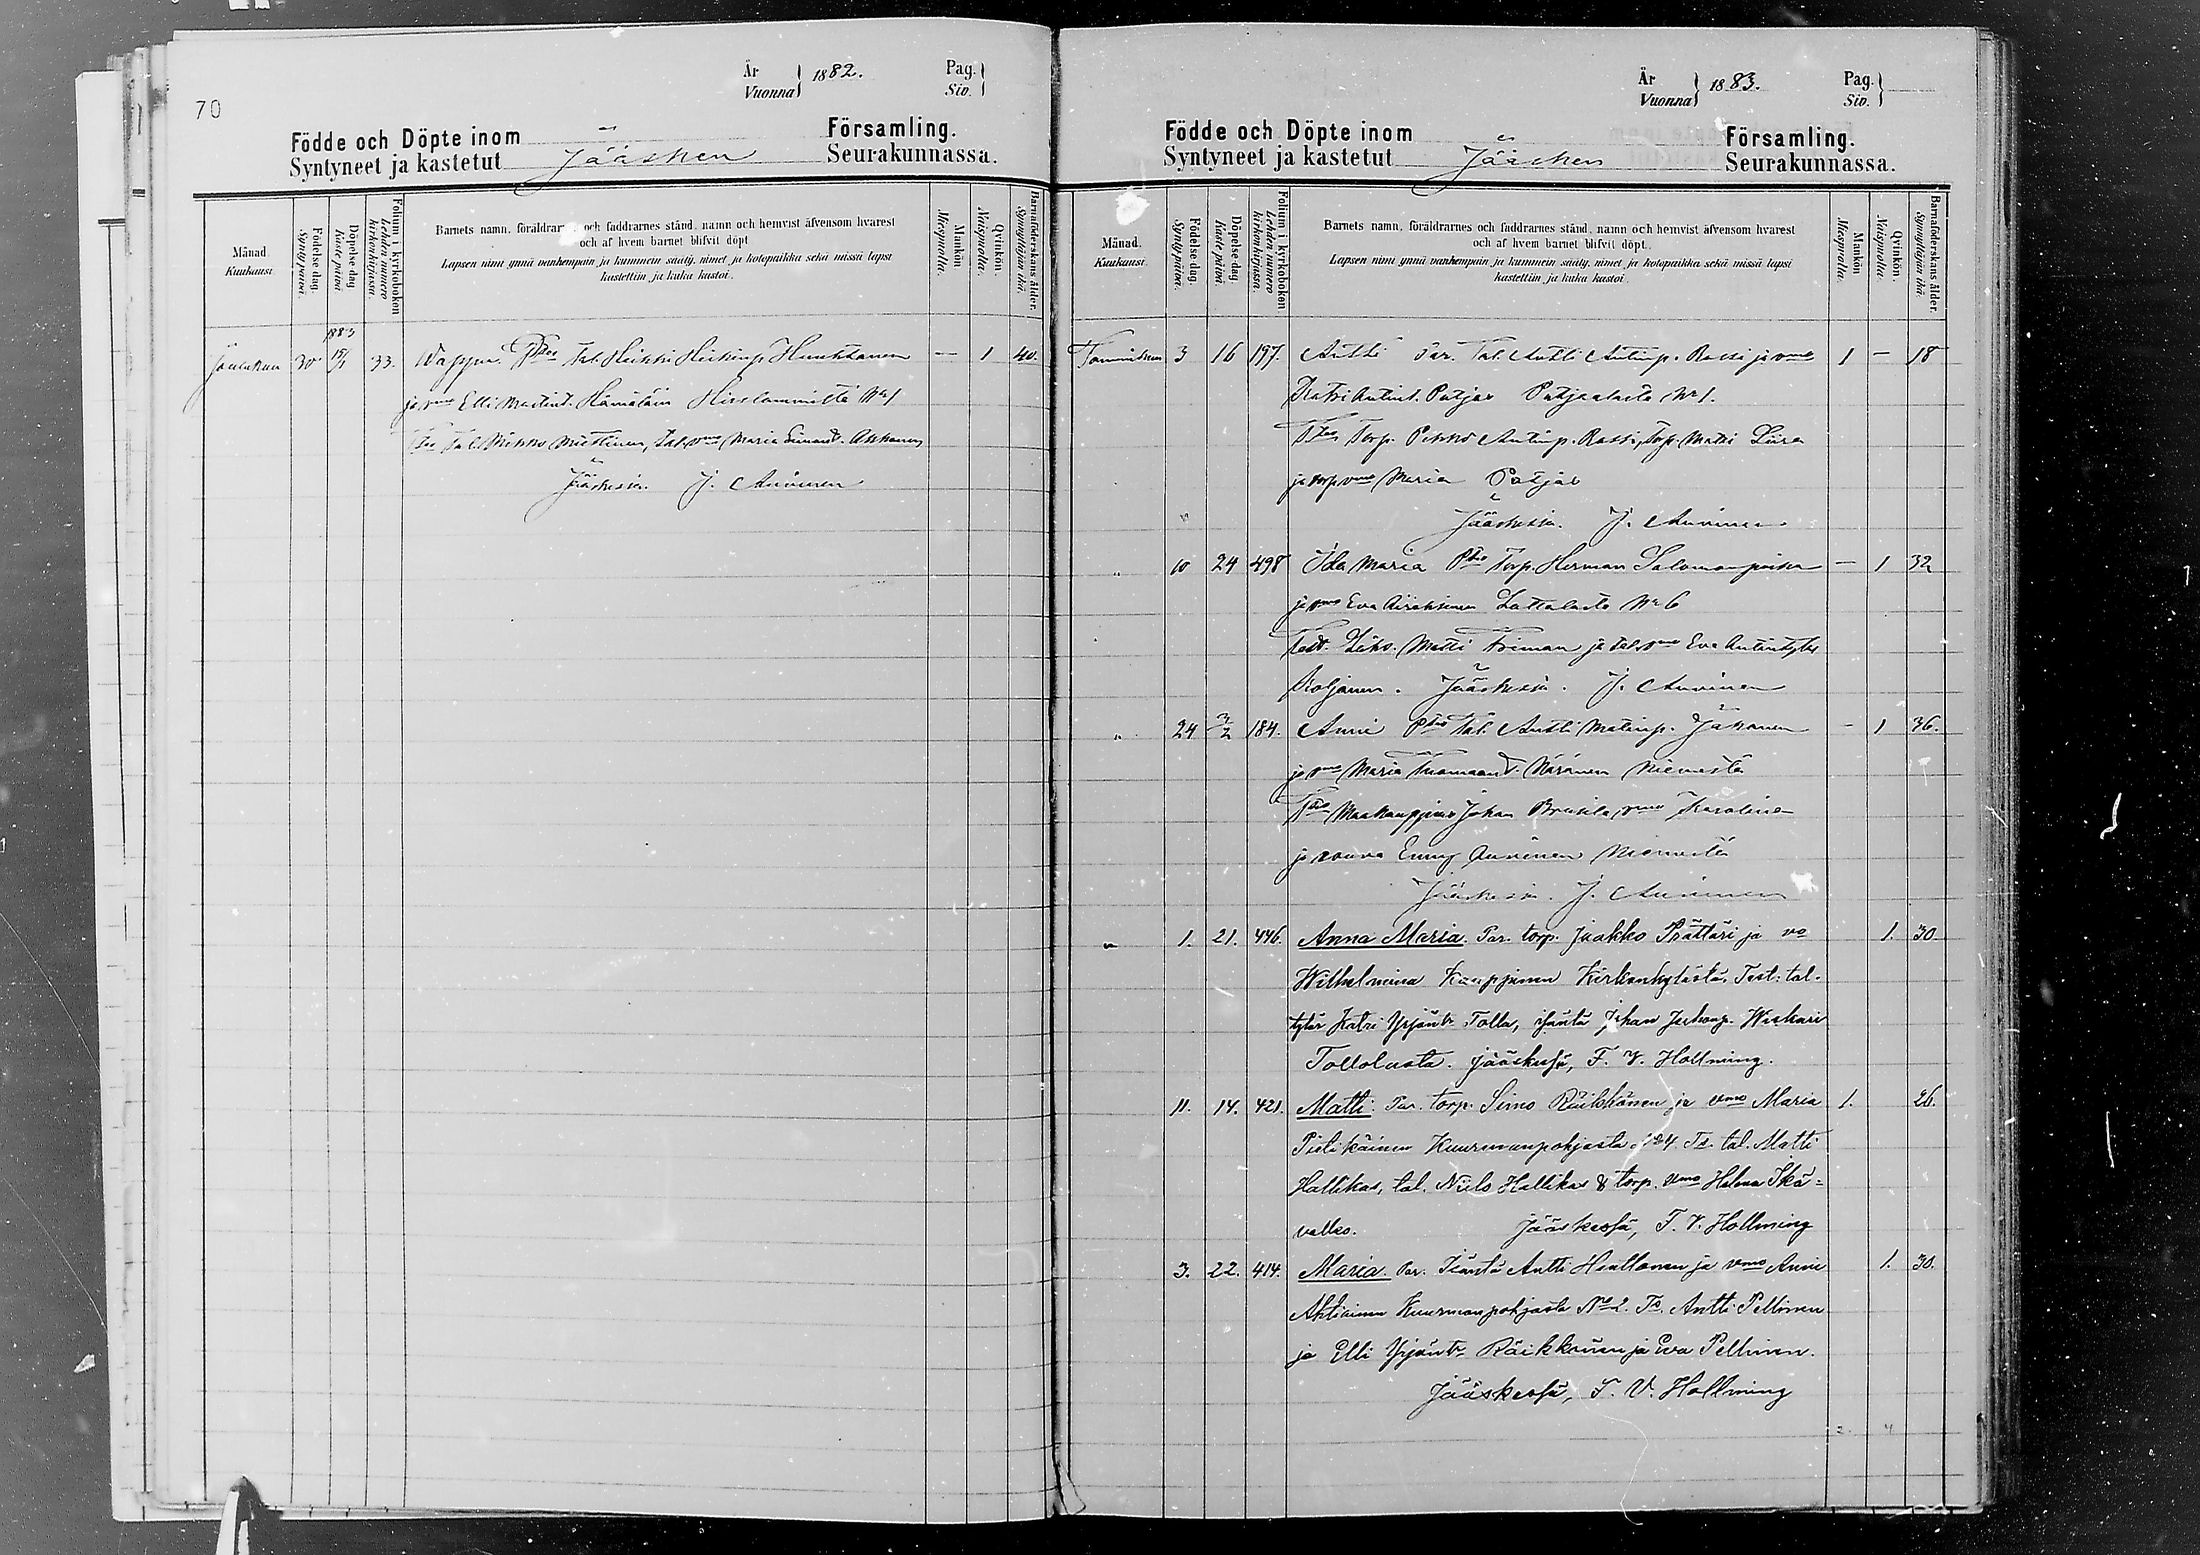 70
År
Vuonna } 1882.
Pag.
Siv. }
Födde och Döpte inom
Syntyneet ja kastetut Jääsken
Församling.
Seurakunnassa.
Månad.
Kuukausi.
Födelse dag.
Synty päivä.
Döpelse dag
Kaste päivä
Folium i kyrkoboken
Lehden numero
kirkonkirjassa.
Barnets namn, föräldrarnes och faddrarnes stånd, namn och hemvist äfvensom hvarest
och af hvem barnet blifvit döpt
Lapsen nimi ynnä vanhempain ja kummein sääty, nimet ja kotopaikka sekä missä lapsi
kastettiin ja kuka kastoi.
Mankön
Miespuolta.
Qvinkön.
Naispuolta.
Barnaföderskans ålder.
Synnyttäjän ikä.
1883
Joulukuu 30 15/1 33. Wappu. Tal. Heikki Heikinp. Huuhtanen — 1 40.
ja vmo Elli Martint. Hämäläin No 1
Tal. Mikko Miettinen, tal. vmo Maria
Jääskessä. J. Auvinen
År
Vuonna } 1883.
Pag.
Siv. }
Födde och Döpte inom
Syntyneet ja kastetut Jääsken
Församling.
Seurakunnassa.
Månad.
Kuukausi.
Födelse dag.
Synty päivä.
Döpelse dag
Kaste päivä
Folium i kyrkoboken
Lehden numero
kirkonkirjassa.
Barnets namn, föräldrarnes och faddrarnes stånd, namn och hemvist äfvensom hvarest
och af hvem barnet blifvit döpt.
Lapsen nimi ynnä vanhempain ja kummein sääty, nimet ja kotopaikka sekä missä lapsi
kastettiin ja kuka kastoi.
Mankön
Miespuolta.
Qvinkön.
Naispuolta.
Barnaföderskans ålder.
Synnyttäjän ikä.
Tammikuu 3 16 197. Antti Par. Tal. Antti Antinp. Rassi ja vmo 1 — 18
Katri Antint. Patjas No 1.
Torp. Pekko Antinp. Rassi, torp. Matti Liira
ja torp vmo Maria Patjas
Jääskessä. J. Auvinen
" 10 24 498 Ida Maria Torp. Herman Salomonpoika — 1 32
ja vmo Eva Airaksinen No 6
Test. Matti Friman ja tal. vmo Eva Antintytär
Koljonen. Jääskessä. J. Auvinen
" 24 3/2 184. Anni Tal. Antti Matinp. — 1 36.
ja vmo Maria Tuomaant. Näränen Niemestä
Maakauppias Johan Brusila, vmo Karolina
ja rouva Auvinen Niemestä
Jääskessä. J. Auvinen
" 1. 21. 446. Anna Maria. Par. torp. Jaakko Prättäri ja vo 1. 30.
Wilhelmina Kauppinen Kirkonkylästä. Test. tal.
tytär Katri Yrjänt. Tolla, isäntä Johan
Tollolasta. Jääskessä, F. V. Hollming.
11. 14. 421. Matti. Par. torp. Simo Räikkönen ja vmo Maria 1. 26.
Pielikäinen Kuurmanpohjasta No 4. Ts. tal. Matti
Hallikas, tal. Niilo Hallikas & torp. vmo Helena Ikä-
valko. Jääskessä, F. V. Hollming
3. 22. 414. Maria. Par. Isäntä Antti Henttonen ja vmo Anni 1. 30.
Ahtiainen Kuurmanpohjasta No 2. Ts. Antti Pellinen
ja Elli Yrjänt. Räikkönen ja Eva Pellinen.
Jääskessä, F. V. Hollming
2. 4